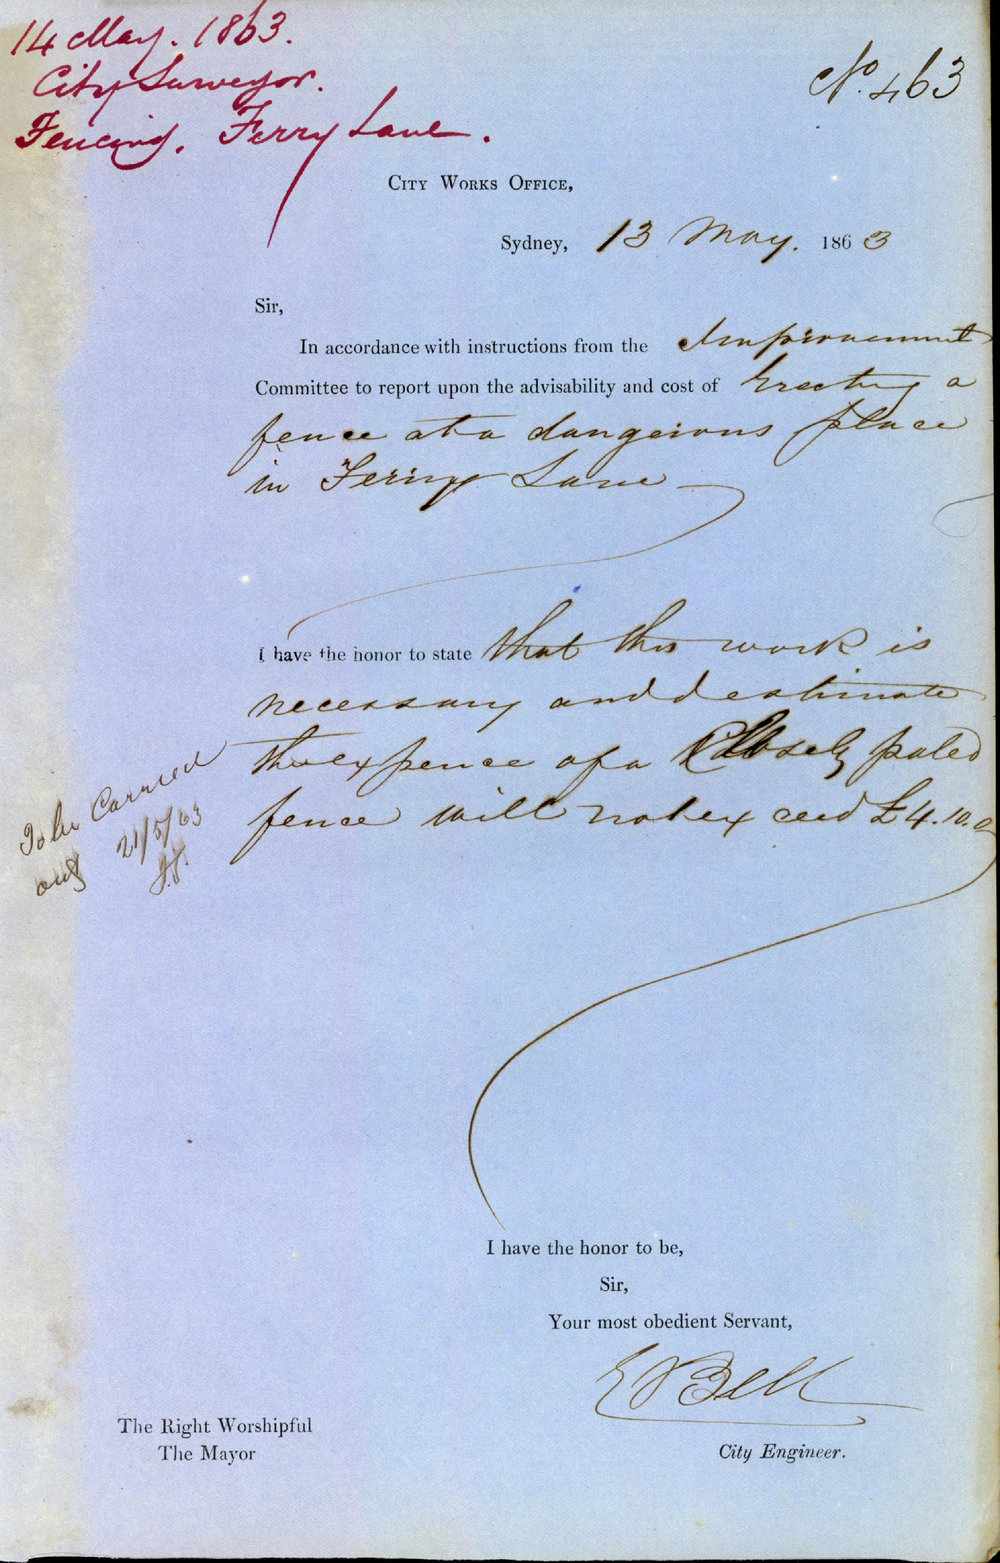 14 May. 1863.
City Surveyor.
Fencing, Ferry Lane.
No. 463
City Works Office,
Sydney, 13 May. 1863
Sir,
In accordance with instructions from the Improvement
Committee to report upon the advisability and cost of Erecting a
fence at a dangerous place
in Ferry Lane
I have the honor to state that this work is
necessary and estimate
the expence of a Closely paled
fence will not exceed £4.10.0
John
out 21/5/63
I have the honor to be,
Sir,
Your most obedient Servant,
E Bell
City Engineer.
The Right Worshipful
The Mayor